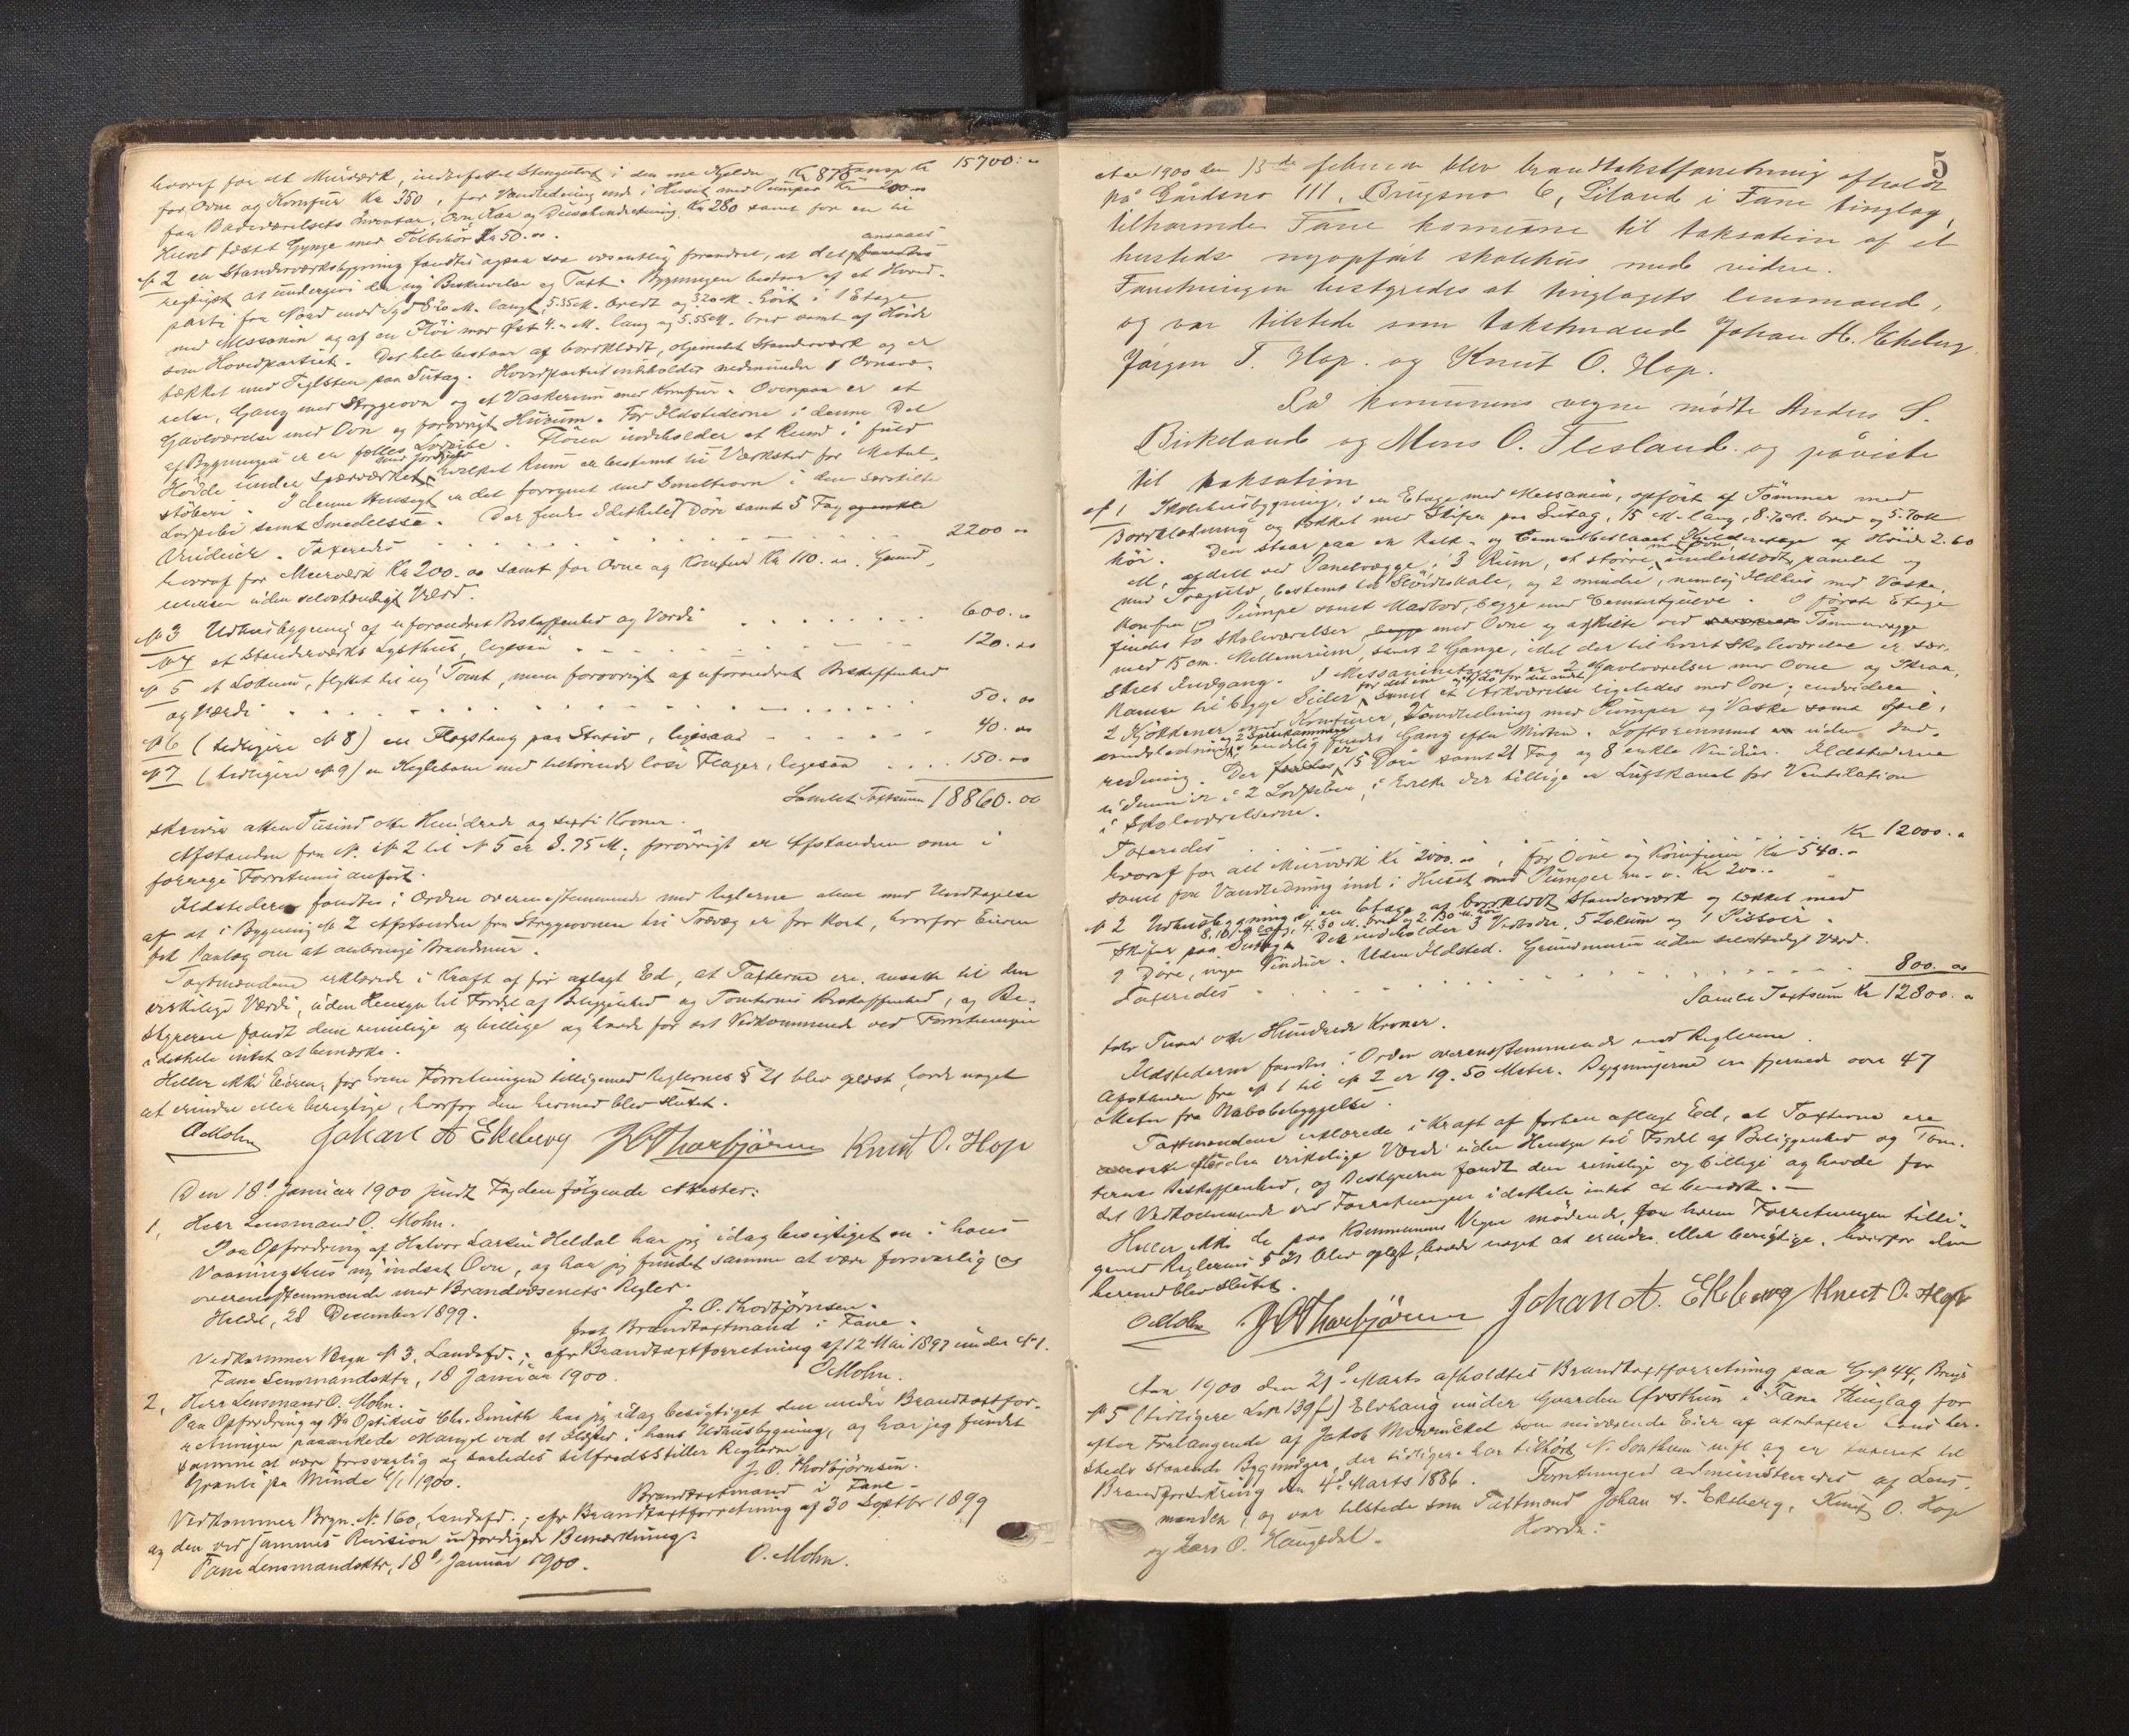 Transp Kr 15700.00
hvoraf for alt Murværk, indbefattet Stengulv i den ene Kjelder, Kr 870
for Ovne og Komfur Kr 350, for Vandledning inde i Huset med Pumper Kr 200.00
for Badeværelsets Inventar, Ovn, Kar og Duscheindretning Kr 280 samt for en til
Huset fæstet Gynge med Tilbehör Kr 50.00.
№ 2 en Standerværksbygning fandtes ogsaa saa væsentlig forandret, at det ansaaes
rigtigst at undergive den ny Beskrivelse og Taxt. Bygningen bestaar af et Hoved-
parti fra Nord mod Syd 8.20 M. langt, 5.35 M. bredt og 3.20 M. höit i 1 Etage
med Messanin og af en Flöi mod Öst 4.- M. lang og 5.55 M. bred samt af Höide
som Hovedpartiet. Det hele bestaar af bordklædt, oljemalet Standerværk og er
tækket med Teglsten paa Sutag. Hovedpartiet indeholder nedenunder 1
relse, Gang med Strygeovn og et Vaskerum med Komfur. Ovenpaa er et
Gavlværelse med Ovn og forövrigt Husrum. For Ildstederne i denne Del
af Bygningen er en fælles Lodpibe. Flöien indeholder et Rum i fuld
Höide under Sperreværket med Jordgulv, hvilket Rum er bestemt til Værksted for Metal-
stöberi. I denne Hensigt er det forsynet med Smelteovn i den særskilte
Lodpibe samt Smedeesse. Der findes idethele 7 Döre samt 5 Fag
Vinduer. Taxeredes . . . . . . . 2200.00
hvoraf for Murværk Kr 200.00 samt for Ovne og Komfur Kr 110.00. Grund-
muren uden selvstændigt Værd.
№ 3 Udhusbygning af uforandret Beskaffenhed og Værdi . . . . 600.00
№ 4 et Standerværks Lysthus, ligesaa . . . . 120.00
№ 5 et Lokum, flyttet til ny Tomt, men forövrigt af uforandret Beskaffenhed
og Værdi . . . . . . 50.00
№ 6 (tidligere № 8) en Flagstang paa Stativ, ligesaa . . . . 40.00
№ 7 (tidligere № 9) en Keglebane med tilhörende löse Flager, ligesaa . . . . 150.00
Samlet Taxtsum 18860.00
skriver atten Tusind otte Hundrede og sexti Kroner.
Afstanden fra № 2 til № 5 er 3.75 M.; forövrigt er Afstanden som i
forrige Forretning anfört.
Ildstederne fandtes i Orden overensstemmende med Reglerne alene med Undtagelse
af at i Bygning № 2 Afstanden fra Strygeovnen til Trævæg er for kort, hvorfor Eieren
fik Paalæg om at anbringe Brandmur.
Taxtmændene erklærede i Kraft af för aflagt Ed, at Taxterne ere ansatte til den
virkelige Værdi, uden Hensyn til Fordel af Beliggenhed og Tomternes Beskaffenhed, og Be-
styreren fandt dem rimelige og billige og havde for sit Vedkommende ved Forretningen
idethele intet at bemærke.
Heller ikke Eieren, for hvem Forretningen tilligemed Reglernes § 21 blev oplæst, havde noget
at erindre eller berigtige, hvorfor den hermed blev sluttet.
O Mohn Johan A Ekeberg J O Thorbjörnsen Knut O. Hop
Den 18de Januar 1900 sendt Fogden fölgende Attester:
1, Herr Lensmand O. Mohn.
Paa Opfordring af Halvor Larsen Heldal har jeg idag besigtiget en i hans
Vaaningshus ny indsat Ovn, og har jeg fundet samme at være forsvarlig og
overensstemmende med Brandvæsenets Regler.
Heldal, 28 December 1899.
J. O. Thorbjørnsen.
fast Brandtaxtmand i Fane.
Vedkommer Bygn № 3, Landsfd.; efr Brandtaxtforretning af 12 Mai 1897 under № 1.
Fane Lensmandsktr, 18 Januar 1900. O Mohn.
2, Herr Lensmand O. Mohn.
Paa Opfordring af Optikus Chr. Smith har jeg idag besigtiget den under Brandtaxtfor-
retningen paaankede Mangel ved et Ildsted i hans Udhusbygning, og har jeg fundet
samme at være forsvarlig og saaledes tilfredsstiller Reglerne.
Granli paa Minde 6/1 1900. J. O. Thorbjørnsen.
Brandtaxtmand i Fane.
Vedkommer Bygn. № 160, Landsfd.; efr Brandtaxtforretning af 30 Septbr 1899
og den ved sammes Revision udfærdigede Bemærkning.
Fane Lensmandsktr, 18de Januar 1900. O. Mohn.
5
Aar 1900 den 13de februar blev brandtakstforretning afholdt
på Gårdsno 111, Brugsno 6, Liland i Fane tinglag,
tilhørende Fane komune til taksation af et
husteds nyopført skolehus med videre.
Forretningen bestyredes af tinglagets lensmand,
og var tilstede som takstmænd Johan A. Ekeberg
Jørgen T. Hop. og Knut O. Hop.
På kommunens vegne mødte Anders S.
Birkeland og Mons O. Flesland og påviste
til taksation
№ 1 Skolehusbygning, i en Etage med Messanin, opfört af Tömmer med
Bordklædning og tækket med Skifer paa Sutag, 15 M. lang, 8.70 M. bred og 5.70 M
höi. Den staar paa en kalk- og Cementbeslaaet Kjelderetage af Höide 2.60
M, afdelt ved Panelvægge i 3 Rum, et större, med Ovn, underklædt, panelet og
med Trægulv, bestemt til Slöidskole, og 2 mindre, nemlig Ildhus med Vaske,
Komfur og Pumpe samt Madbod, begge med Cementgulve. I förste Etage
findes to Skoleværelser med Ovne og adskilte ved Tömmervægge
med 15 cm. Mellemrum, samt 2 Gange, idet der til hvert Skoleværelse er sær-
skilt Indgang. I Messaninetagen er 2 Gavlværelser med Ovne og Skraa-
kamre til begge Sider for det ene og til en Side for det andet samt et Arkværelse ligeledes med Ovn; endvidere
2 Kjökkener med Komfurer, Vandledning med Pumper og Vaske samt Spil-
vandsledning og 2 Spisekammere; endelig findes Gang efter Midten. Loftsrummet er uden Ind-
redning. Der er 15 Döre samt 21 Fag og 8 enkle Vinduer. Ildstederne
udmunder i 2 Lodpiber, i hvilke der tillige er Luftkanal for Ventilation
i Skoleværelserne.
Taxeredes . . . . . . Kr 12000.00
hvoraf for alt Murværk Kr 2000.00, for Ovne og Komfurer Kr 540.-
samt for Vandledning ind i Huset med Pumper m. v. Kr 200.-
№ 2 Udhusbygning i en Etage af bordklædt Standerværk og tækket med
Skifer paa Sutag, 8.10 M lang, 4.30 M. bred og 2.80 M. höi. Den indeholder 3 Vedboder, 5 Lokum og 1 Pissoir.
9 Döre, ingen Vinduer. Uden Ildsted. Grundmuren uden selvstændigt Værd.
Taxeredes . . . . . . 800.00
Samlet Taxtsum Kr 12800.00
tolv Tusend otte Hundrede Kroner.
Ildstederne fandtes i Orden overensstemmende med Reglerne.
Afstanden fra № 1 til № 2 er 19.50 Meter. Bygningerne ere fjernede over 47
Meter fra Nabobebyggelse.
Taxtmændene erklærede i Kraft af forhen aflagt Ed, at Taxterne ere
ansatte efter den virkelige Værdi uden Hensyn til Fordel af Beliggenhed og Tom-
ternes Beskaffenhed, og Bestyreren fandt dem rimelige og billige og havde for
sit Vedkommende ved Forretningen idethele intet at bemærke. —
Heller ikke de paa Kommunens Vegne mödende, for hvem Forretningen tilli-
gemed Reglernes § 21 blev oplæst, havde noget at erindre eller berigtige, hvorfor den
hermed blev sluttet.
O Mohn J O Thorbjörnsen Johan A. Ekeberg Knut O. Hop
Aar 1900 den 21de Marts afholdtes Brandtaxtforretning paa G№ 44, Brugs
№ 5 (tidligere L№ 139f) Elvhaug under Gaarden Övsthun i Fane Thinglag for
efter Forlangende af Jakob som nuværende Eier af at omtaxere endel her-
steds staaende Bygninger, der tidligere har tilhört N. og er taxeret til
Brandforsikring den 4de Marts 1886. Forretningen administreredes af Lens-
manden, og var tilstede som Taxtmænd Johan A. Ekeberg, Knut O. Hop
og Lars O. Haugsdal.
Hvorda: